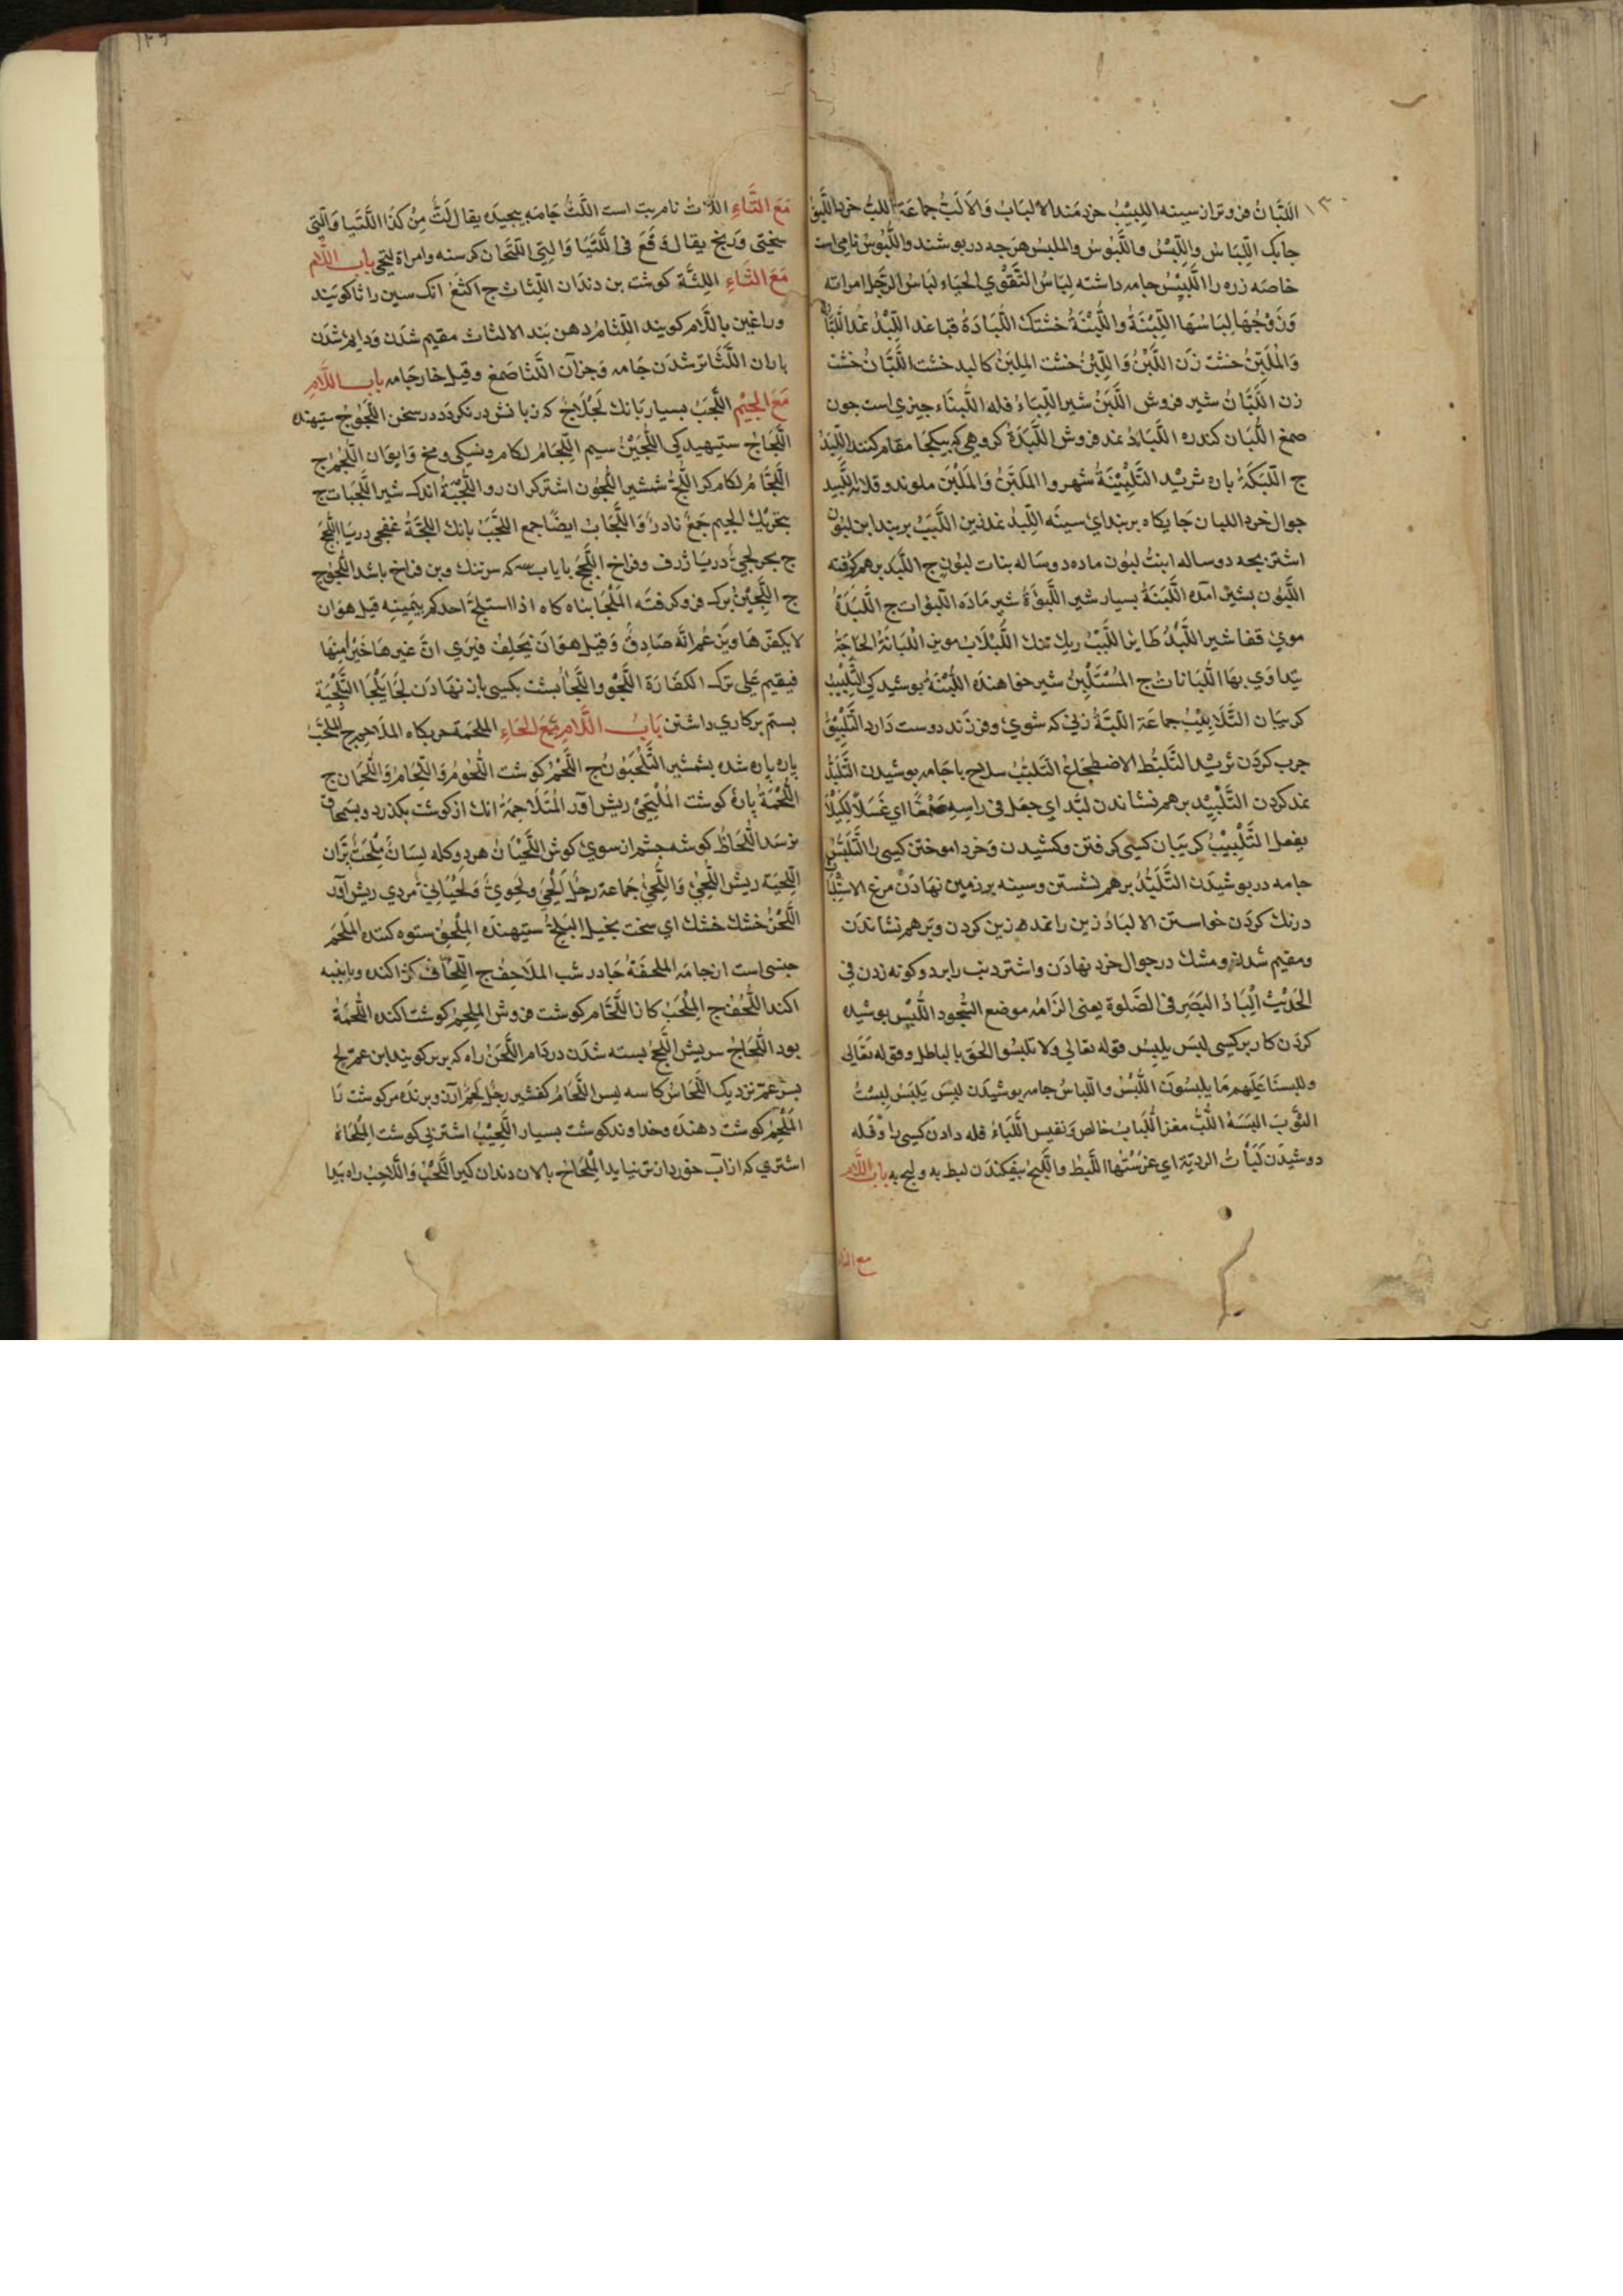 ١٣٠
اللَّبَّانُ فروتر از سينه اللبِيْبُ خردمند الالبَابُ وَالاَلَبُّ جماعة اللبُّ خرد اللَّبِقُ
جابك اللِّبَاسُ واللِّبْسُ واللَّبوُسُ والملبسُ هرجه در بوشند واللَّبُوسُ نامى است
خاصه زره را اللَّبِيْسُ جامه داشته لِبَاسُ التَّقْوٰي الحَيَاء لبَاسُ الرَّجُل امراته
وَزَوْجُهَا لِبَاسُهَا اللَّبِنَةُ واللِّبْنَةُ خشتك اللُّبَادَةُ قبا عند اللِّبْدُ نمد
وَالمُلَبِّنُ خشت زَن اللَّبْنُ وَاللِّبْنُ خشت المِلبَنُ كالبد خشت اللَّبَّانُ خشت
زن اللَّبَّانُ شير فروش اللَّبَنُ شير اللِّبَاءُ فله اللُّبنَاء جيزي است جون
صمغ اللُّبَان كندره اللَّبَّادُ نمد فروش اللُّبَدَةُ كروهي كه بيكجا مقام كنند اللِّبَدُ
ج اللَّبَكَةُ باره ثريْد التَّلْبِيْنَةُ شهروا
جوال خرد اللبان جايكاه بربند اي سينَه اللِّبدُ نمد زين اللَّبَبُ بربند ابن لبُون
اشتر بجه دو ساله ابنتُ لبُون ماده دو سَاله بنات لبُون ج اللَّبِد برهم كرفته
اللَّبُون بشير آمده اللَّبنَةُ بسيار شير اللَّبُؤَةُ شير مَادَه اللَّبؤات ج اللُّبْدَةُ
موي قفا شير اللُّبَدُ طاير اللَّبَبُ ريك تنك اللَّبْلَابُ مويز اللُّبَانَةُ الحَاجَةُ
يتداوَي بهَا اللُّبَانات ج المُسْتَلْبِنُ شير خواهنده اللُّبْسَةُ بوشيدكي التَّلْبِيْبُ
كريبَان التَّلَابِيْبُ جماعَة اللَّبَّةُ زني كه شوي و فرزند دوست دَارد التَّلْبِيْقُ
جرب كردَن ثريْد التَّلَبُّط الاضطجاع التَلَبُّبُ سلاح با جَامه بوشيدن التَّلَبُّدُ
نمد كردن التَّلْبِيْد برهم نشاندن لبَّد اي جعَل فى راسِهِ صَمْغًا اي غَسَلًا لِكَيْلَا
يفعل التَّلْبِيْبُ كريبَان كسِي كرفتن و كشيدن وَ خرد اموختن كسي را التَّلَبُّسُ
جامه در بوشيدَن التَّلَبُّدُ برهم نشستن و سينه بر زمين نهادَن مرغ
درنك كردَن خواستن الالبَادُ زين را نمد زين كردن وَ برهم نشاندَن
و مقيم شدن و مشك در جوال خرد نهادَن و اشتر دنب را بر دو كونه زدن فى
الحَدِيْثُ اَلِبَادُ البَصَرِ فى الصَّلوة يعنى الزَامُه موضع السُّجُود اللُّبْس بوشيده
كردَن كار بر كسِى لبَس يلبِسُ قوله تعالى ولا تلبسُوا الحق بالباطل و قوله تعَالى
و للبسنَا عَلَيهم مَا يلبِسُونَ اللُّبْسُ و اللّبَاسُ جامه بوشيدَن لبِسَ يَلبَسُ لبِسْتُ
الثَّوبَ البَسَهُ اللُّبُّ مغز اللُّبَابُ خالص وَ نفيس اللَّبَاءُ فله دادَن كسِى را وَ فله
دوشيدَن اللَّبْطُ واللَّبجُ بيفكندَن لبط به و لبج به باب اللَّام
مع التا
١٢٩
مَعَ التَّاءِ اللَّاتُ نام بت است اللَّتُّ جَامه بيجيدَه يقال لَتُّ مِنْ كذَا اللَّتَيا وَالَّتِى
سختى وَ رنج يقال وَقَعَ فى اللَّتَيَا وَالتى اللَّتْحَان كرسنه وامراة لتحى باب اللَّام
مَعَ الثَّاءِ اللِّثَّة كوشت بن دندَان اللِّثَات ج الثَغُ انك سين را ثا كويند
و را غين يا للَّام كويند اللِّثامُ دهن بَند الالثاث مقيم شدَن وَ دايم شدَن
باران اللَّثَا تر شدَن جَامه وَ جز آن اللَّثَا صَمغ و قيل خار جَامه باب اللَّام
مَعَ الجيْمِ اللَّجَبُ بسيار بَانك لَجْلَاجٌ كه زبانش در نكردَد در سخن اللَّجُوْجُ ستيهنده
اللَّجَاجُ ستيهيدكى اللُّجَيْنُ سيم اللِّجَامُ لكام
اللَّجَّامُ لكام كر اللُّجُّ شمشير اللَّجُون اشتر كران رو اللَّجْبَةُ اندك شير اللَّجَبَات ج
بتحريك الجيم جَمعٌ نادرٌ وَ اللِّجَاب ايضًا جمع اللَّجَبُ بانك اللُّجَّةُ غفجى دريَا اللُّجَجُ
ج بحر لجىٌّ دريَا ژرف و فراخ اللَّجَفُ كه سرتنك و بن فراخ باشد
ج اللَّجِيْنُ برك فرو كرفتَه المَلْجَا بناه كاه اذا استلجَّ احدكم بيَمِينِه قيل هو ان
لا يكفّرهَا وَ يزعُم انَّه صَادقٌ وَ قيل هوَ ان يَحلِفَ فيَرَي انَّ غيرهَا خيرٌ منهَا
فيقيم عَلى ترك الكفَّارَة اللَّجْو واللَّجَأُ بشت بكسِى باز نهَادَن لجَأ يَلْجَأ التَّلْجِيَة
بستم بر كاري داشتن بَابُ اللَّامِ مَعَ الحَاءِ الملحَمَة حربكاه الملَاحِم ج المُلَحَّب
باره باره شده بشمشير المُلَحَّبُونُ ج اللَّحْمُ كوشت اللُّحُومُ وَ اللِّحَام وَ اللُّحمَان ج
اللُّحْمَةُ بارۀ كوشت المُلْتَحِيْ ريش آور المُتَلَاحِمَةُ انك از كوشت بكذرد و بسِمحاق
نرسَد اللَّحَاظُ كوشه جشم از سوي كوش اللَّحْيَان هر دو كله لِسَانٌ مِلْحَبٌ بَرّان
اللِّحيَة ريش اللُّحِىُّ وَ اللِّحَىُّ جَماعة رجُل اَلْحَى و لحَوِيٌّ وَ لحْيَانِىٌّ مردي ريش آور
اللَّحْزُ خشك خشك اي سخت بخيل المُلِحُّ ستيهنده المُلْحِفُ ستوه كننده المُلْحَم
جنسى است از جامه الملحفَةُ جَادر شب الملَاحِفُ ج اللِّحَافُ كژ اكنده و بابنبه
اكند اللُّحُفُ ج المِلْحَبُ كازا اللَّحَّام كوشت فروش المُلْحِمُ كوشت اكنده اللُّحْمَةُ
بود اللِّحَاجُ سريش اللَّحجُ بسته شدَن در دَام
بسر عمّ نزديك اللَّحَّاسُ كاسه ليس اللَّحَّامُ كفشير رجُل لَحِمٌ آرزو برنده بر كوشت تَا
المُلْحِمُ كوشت دهنده وَ خداوند كوشت بسيار اللَّحِيْبُ اشتر بى كوشت المِلْحَاةُ
اشترى كه از آب خوردن نيايد المِلْحَاحُ بالان دندان كير اللَّحْبُ وَاللَّاحِبُ راه بَيدا